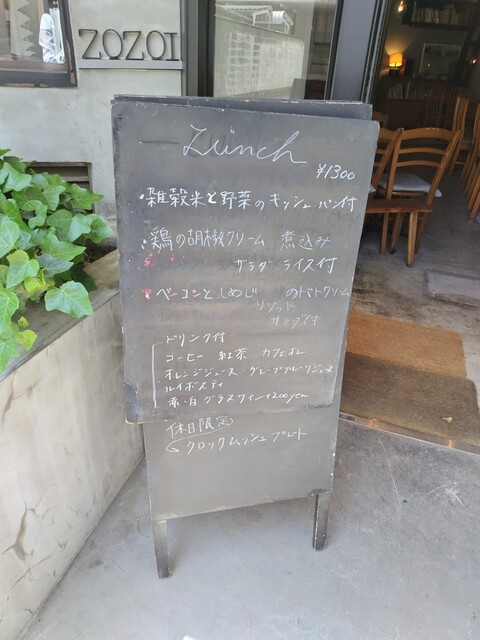 ZOZOI
Lunch
¥1300
・雑穀米と野菜のキッシュ パン付
・鶏の胡椒クリーム 煮込み
サラダ ライス付
・ベーコンとしめじ のトマトクリーム
リゾット
サラダ付
ドリンク付
コーヒー 紅茶 カフェオレ
オレンジジュース グレープフルーツジュース
ルイボスティ
赤・白 グラスワイン+200yen
休日限定
クロックムッシュプレート